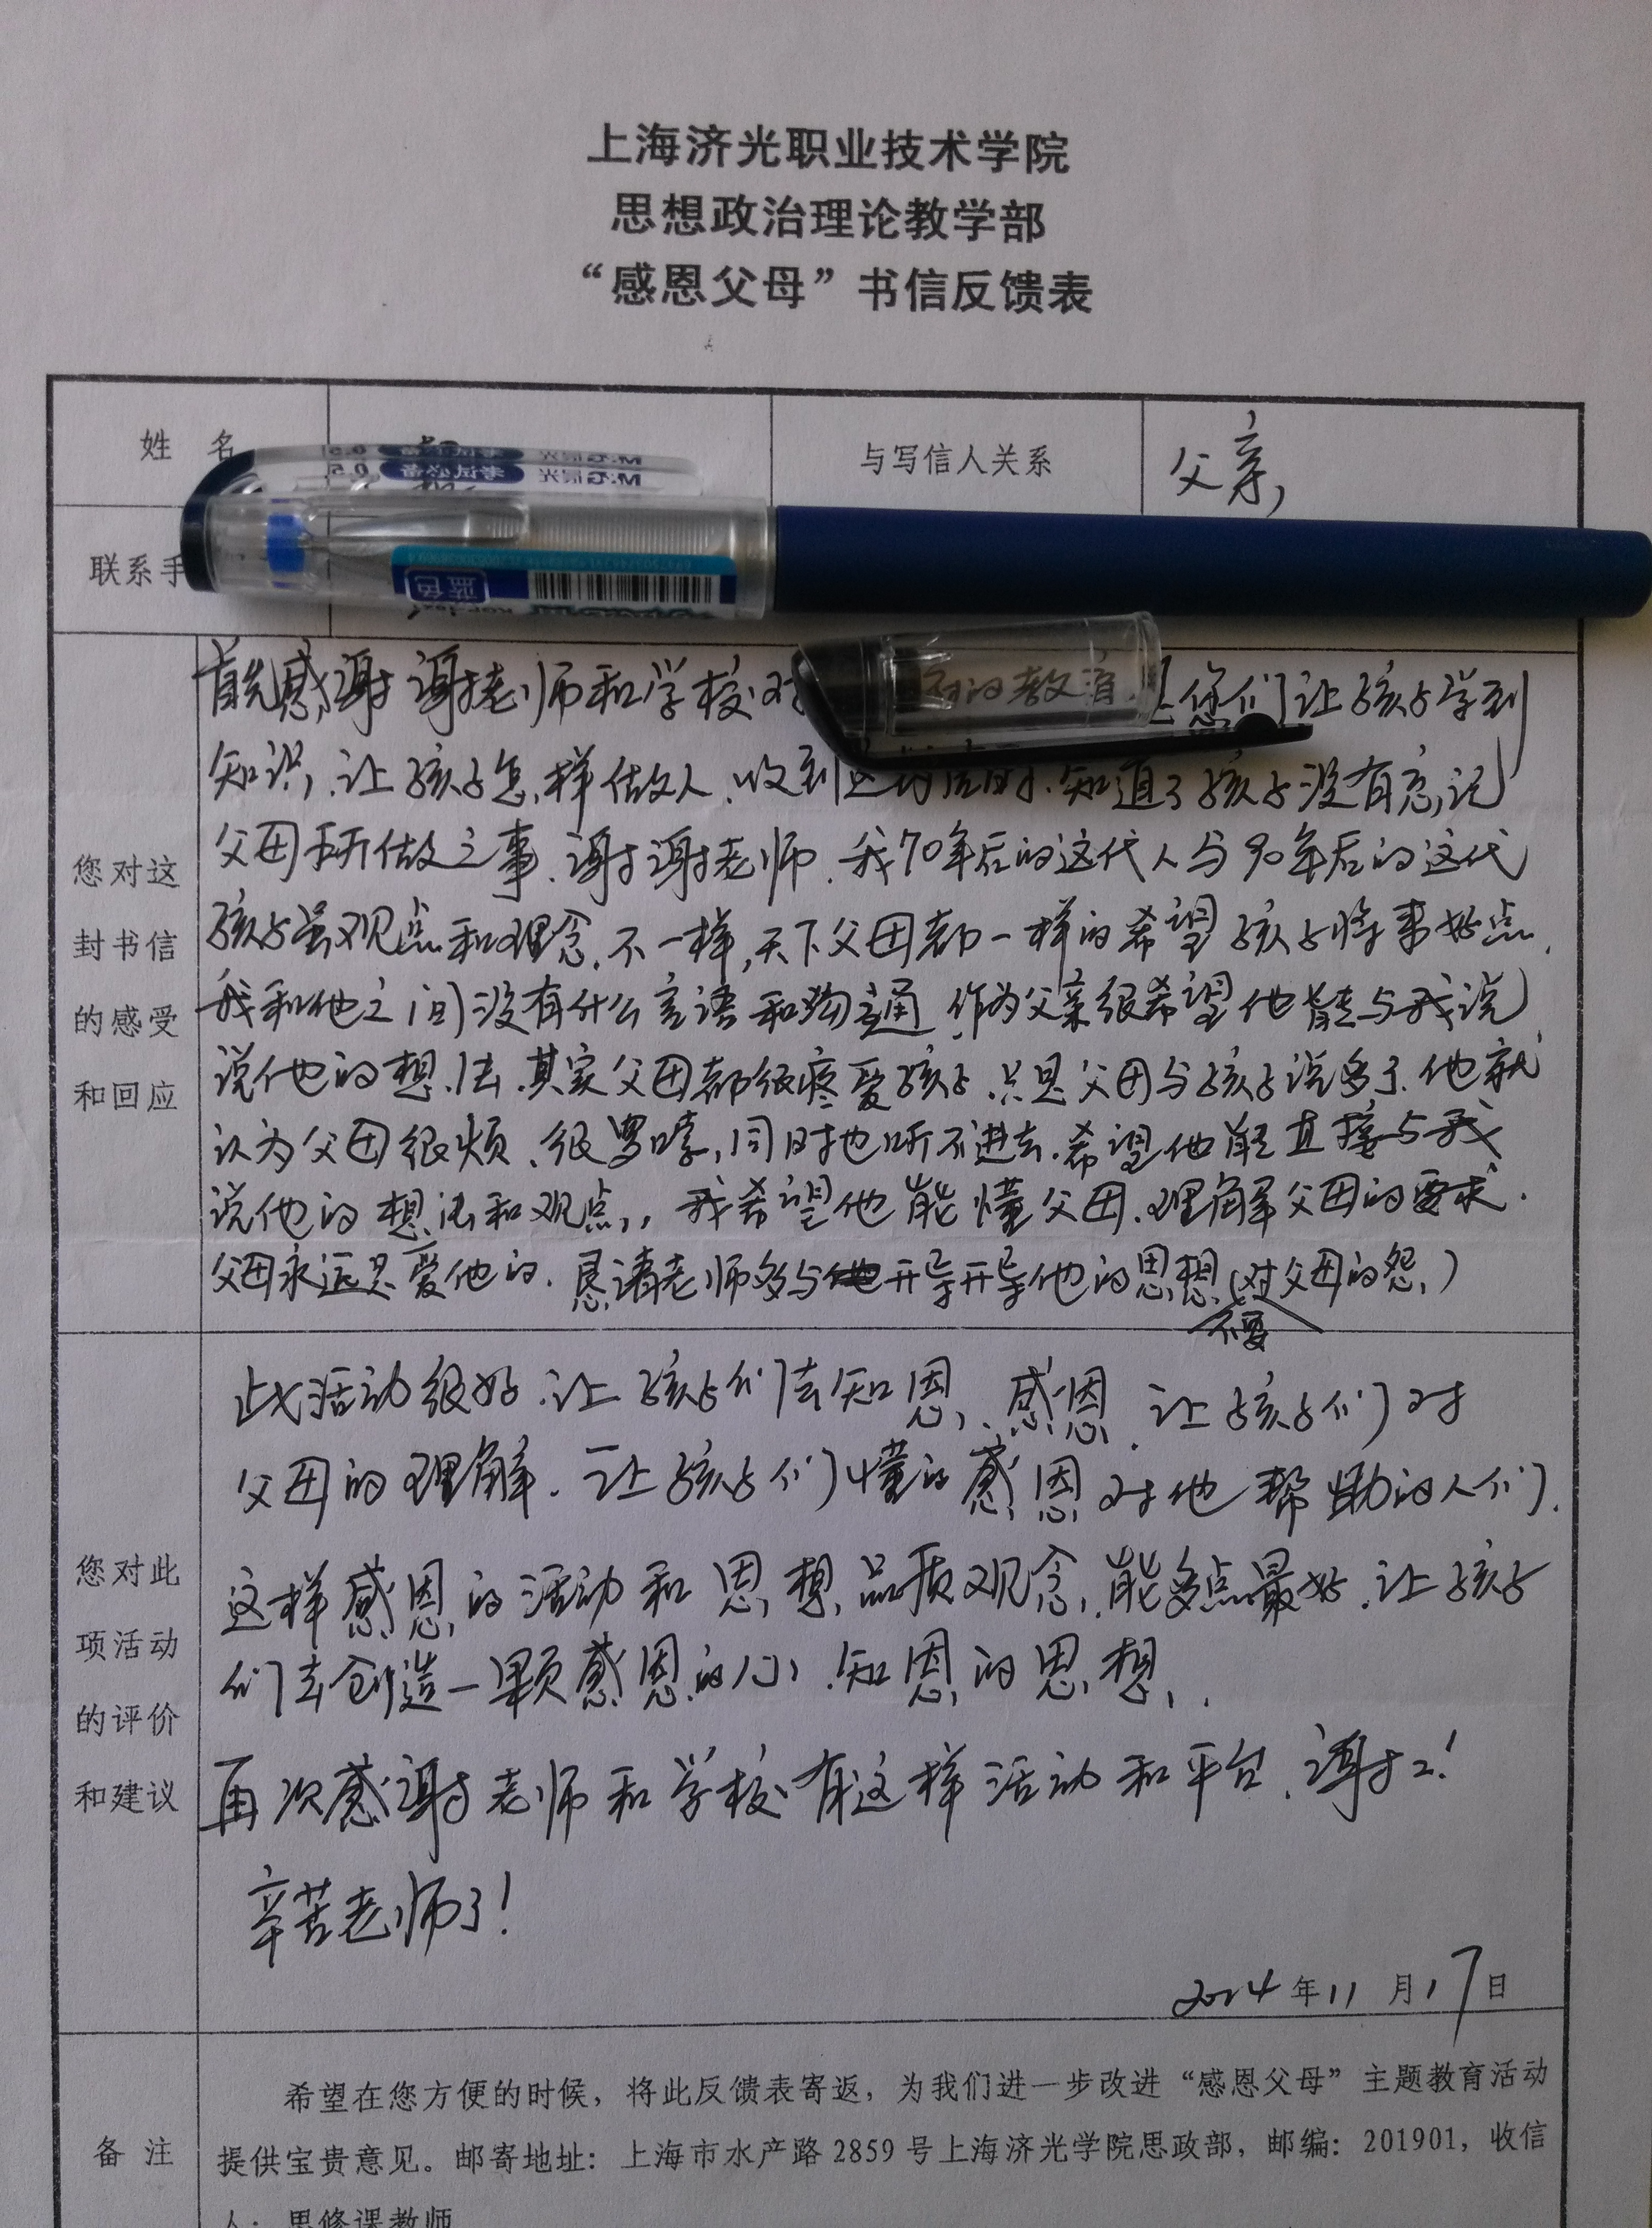 上海济光职业技术学院
思想政治理论教学部
“感恩父母”书信反馈表
姓 名
与写信人关系
父亲
联系手
蓝色
您对这
封书信
的感受
和回应
首先感谢谢老师和学校对 的教育 您们让孩子学到
知识,让孩子怎样做人.收到这封信时.知道了孩子没有忘记
父母所做之事.谢谢老师.我70年后的这代人与90年后的这代
孩子虽观点和理念.不一样,天下父母都一样的希望孩子将来好点.
我和他之间没有什么言语和沟通 作为父亲很希望他能与我说
说他的想法.其实父母都很疼爱孩子.只是父母与孩子说多了.他就
认为父母很烦、很罗嗦,同时他听不进去.希望他能直接与我
说他的想法和观点,,我希望他能懂父母.理解父母的要求.
父母永远是爱他的.恳请老师多与他开导开导他的思想(不要对父母的怨)
您对此
项活动
的评价
和建议
此活动很好.让孩子们去知恩、感恩.让孩子们对
父母的理解.让孩子们懂的感恩对他帮助的人们.
这样感恩的活动和思想品质观念,能多点最好.让孩子
们去创造一颗感恩的心.知恩的思想.
再次感谢老师和学校有这样活动和平台.谢谢!
辛苦老师了!
2014年11月17日
备 注
希望在您方便的时候，将此反馈表寄返，为我们进一步改进“感恩父母”主题教育活动
提供宝贵意见。邮寄地址：上海市水产路2859号上海济光学院思政部，邮编：201901，收信
人：思修课教师